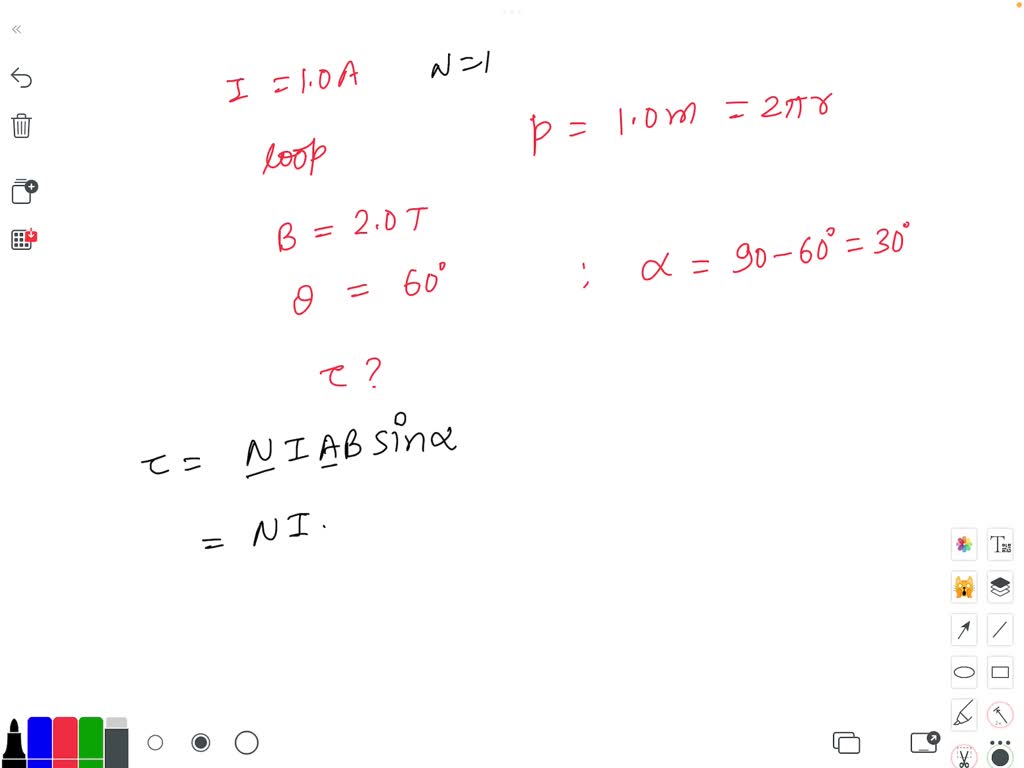 I = 1.0A N=1
p = 1.0m = 2πr
loop
B = 2.0T
θ = 60° ; α = 90-60° = 30°
τ ?
τ = NIAB sinα
= NI.